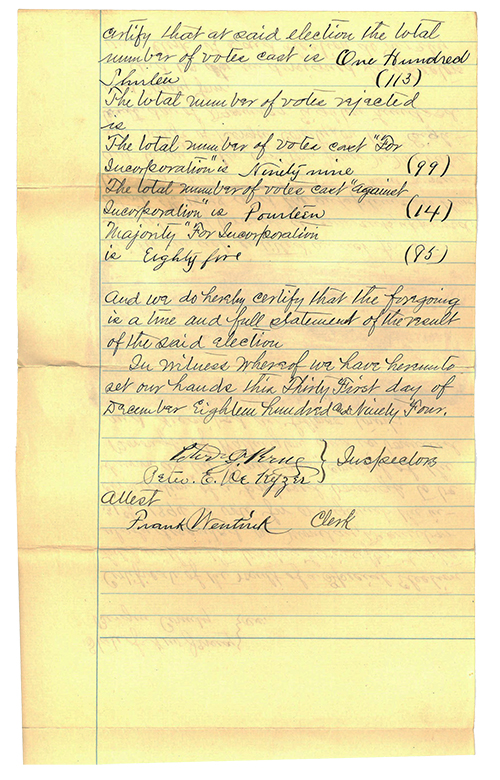 certify that at said election the total
number of votes cast is One Hundred
Thirten (113)
The total number of votes rejected
is
The total number of votes cast "For
Incorporation" is Ninety nine (99)
The total number of votes cast "against
Incorporation" is Fourteen (14)
Majority "For Incorporation
is Eighty five (85)
And we do hereby certify that the foregoing
is a true and full statement of the result
of the said election
In Witness Whereof we have hereunto
set our hands this Thirty First day of
December Eighteen hundred and Ninety Four.
Peter G. } Inspectors
Peter. E. De Ryzer
Attest
Frank Wentink Clerk